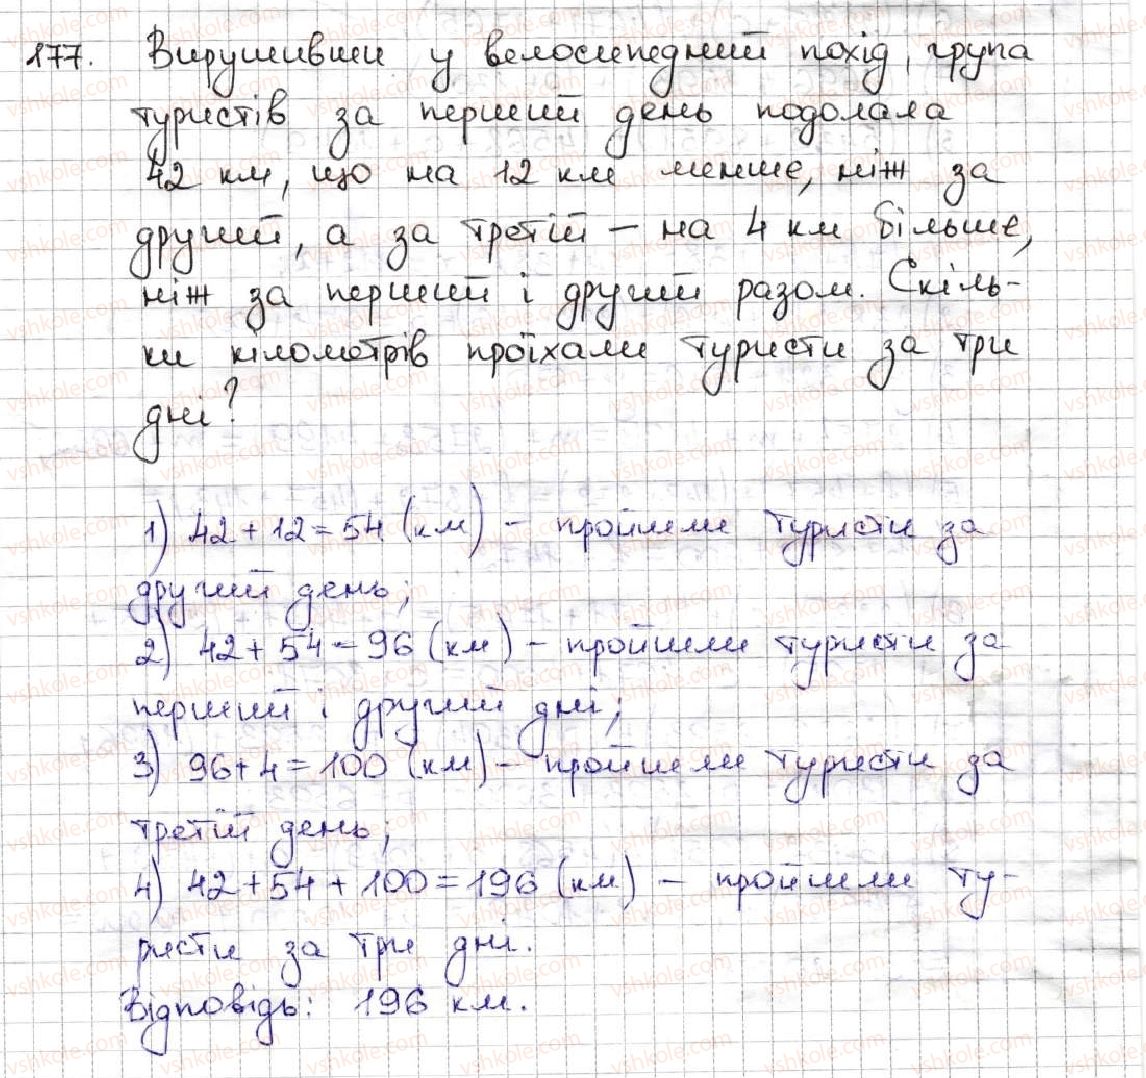 177. Вирушивши у велосипедний похід, група
туристів за перший день подолала
42 км, що на 12 км менше, ніж за
другий, а за третій – на 4 км більше,
ніж за перший і другий разом. Скіль-
ки кілометрів проїхали туристи за три
дні?
1) 42 + 12 = 54 (км) – пройшли туристи за
другий день;
2) 42 + 54 = 96 (км) – пройшли туристи за
перший і другий дні;
3) 96 + 4 = 100 (км) – пройшли туристи за
третій день;
4) 42 + 54 + 100 = 196 (км) – пройшли ту-
ристи за три дні.
Відповідь: 196 км.